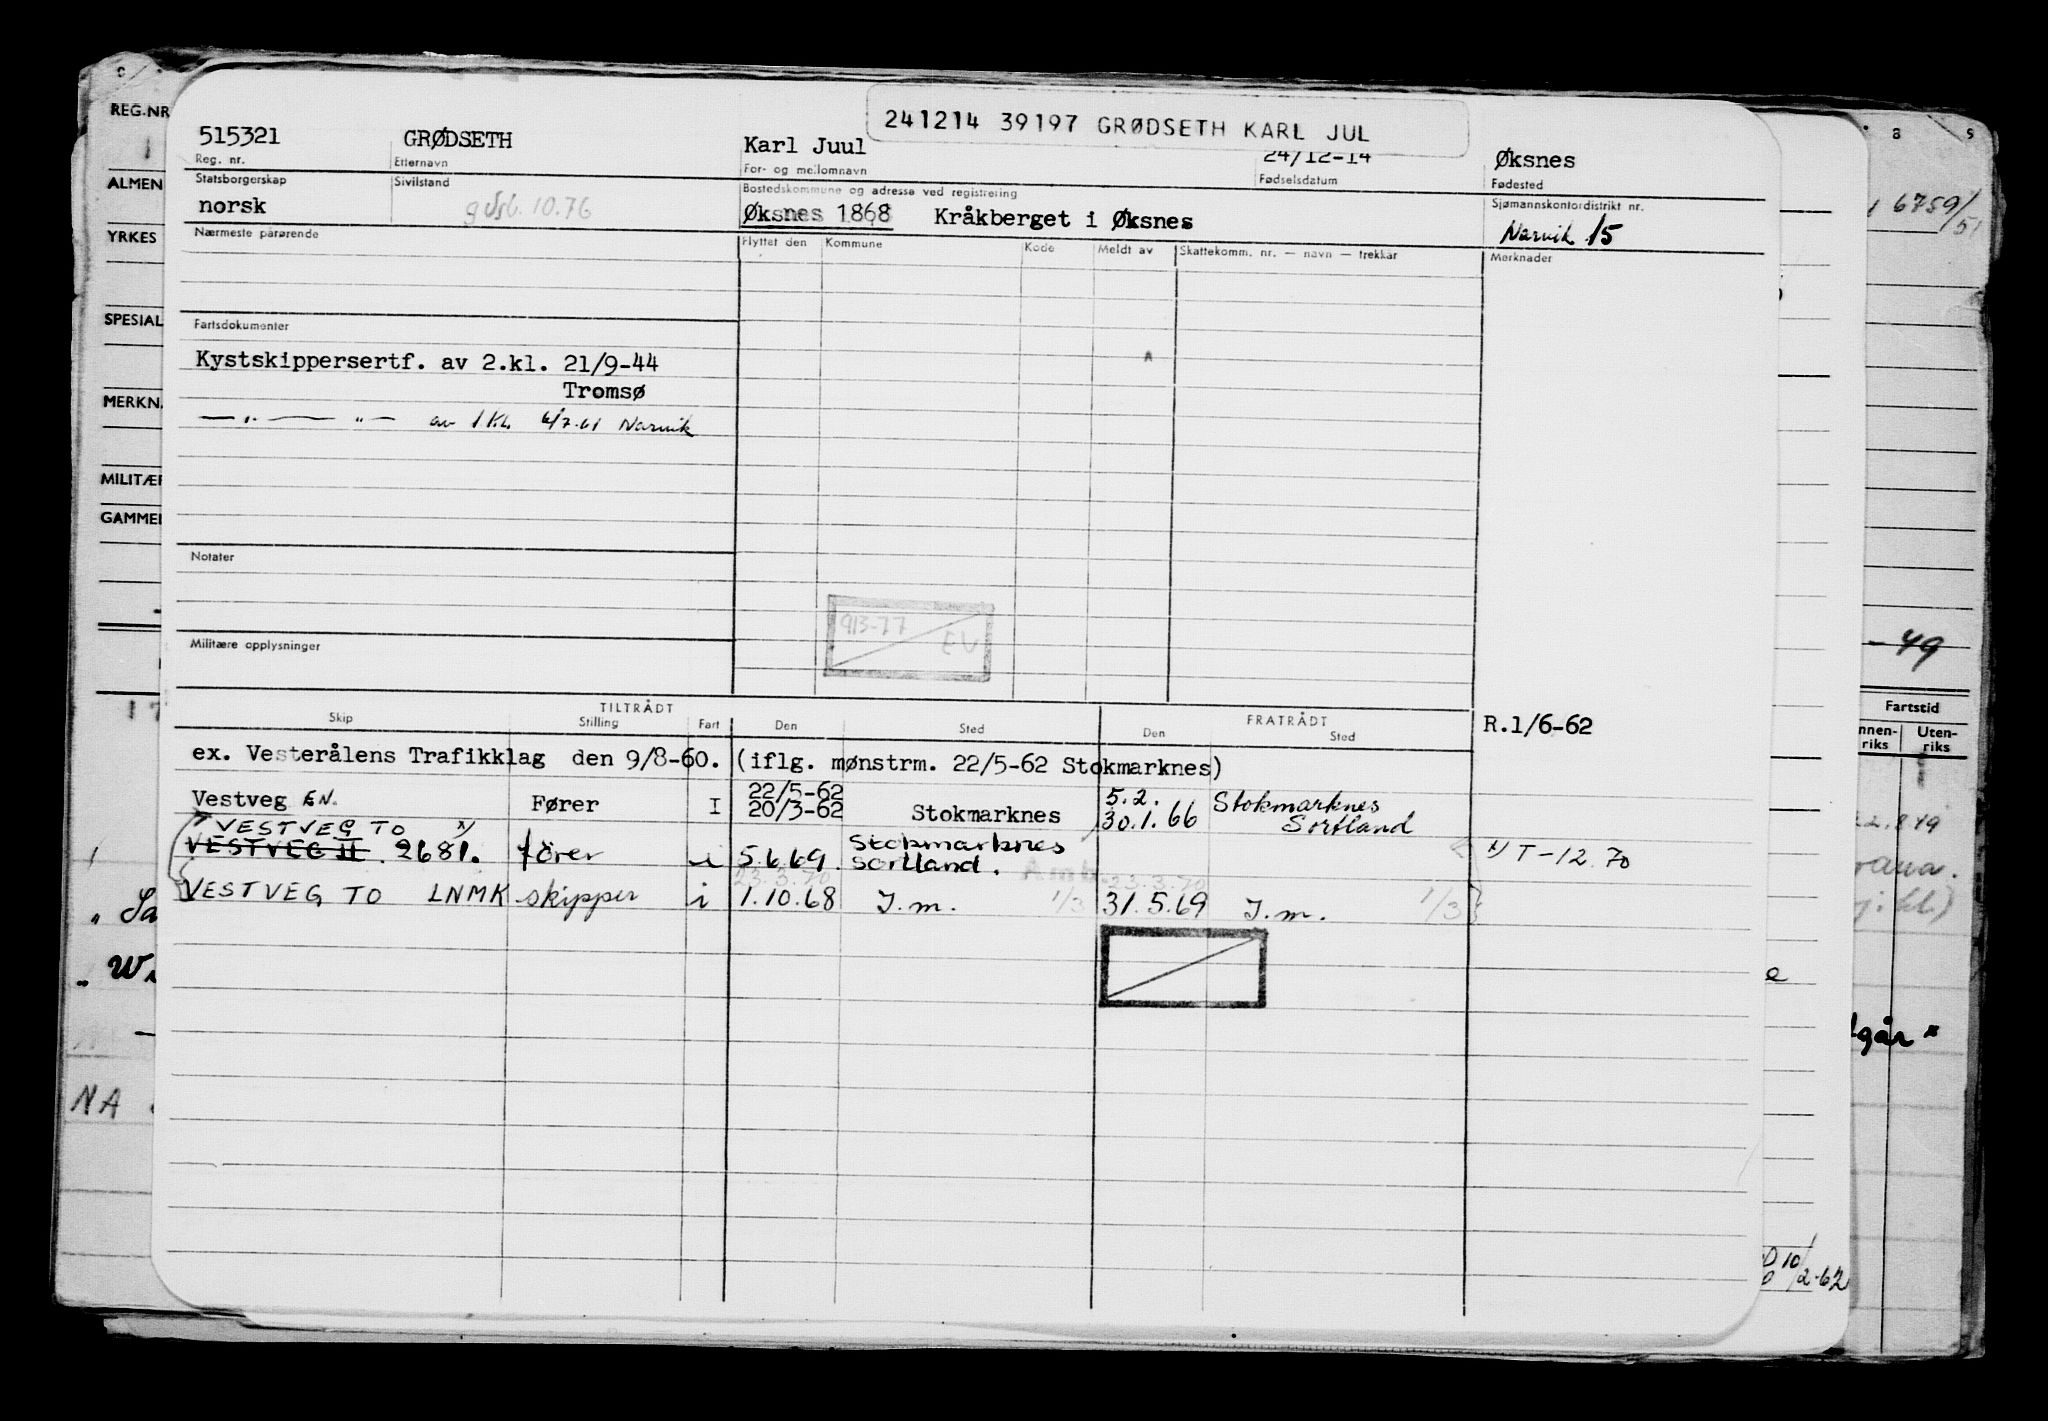 REG.NR
241214 39197 GRØDSETH KARL JUL
515321 GRØDSETH Karl Juul 24/12-14 Øksnes
Reg. nr. Etternavn For- og mellomnavn Fødselsdatum Fødested
ALMEN
Statsborgerskap Sivilstand Bostedskommune og adresse ved registrering Sjømannskontordistrikt nr.
norsk Øksnes 1868 Kråkberget i Øksnes Narvik 15
6759/51
YRKES
Nærmeste pårørende Flyttet den Kommune Kode Meldt av Skattekomm. nr. — navn — trekkår Merknader
SPESIAL
Fartsdokumenter
Kystskippersertf. av 2.kl. 21/9-44
Tromsø
MERKN.
— " — " — av 1 kl. 6/7-61 Narvik
MILITÆR
GAMMEL
Notater
913-77 EU
Militære opplysninger
-49
TILTRÅDT FRATRÅDT
Skip Stilling Fart Den Sted Den Sted
R.1/6-62
Fartstid
nnen-riks Uten-riks
ex. Vesterålens Trafikklag den 9/8-60. (iflg. mønstrm. 22/5-62 Stokmarknes)
Vestveg EN. Fører I 22/5-62 20/3-62 Stokmarknes 5.2. 30.1.66 Stokmarknes Sortland
VESTVEG TO x/
VESTVEG II. 2681. fører i 5.6.69. Stokmarknes Sortland. x/ T-12.70
23.3.70 23.3.70
VESTVEG TO LNMK skipper i 1.10.68 J.m. 1/3 31.5.69 J.m. 1/3
lgår"
NA
10/2-62